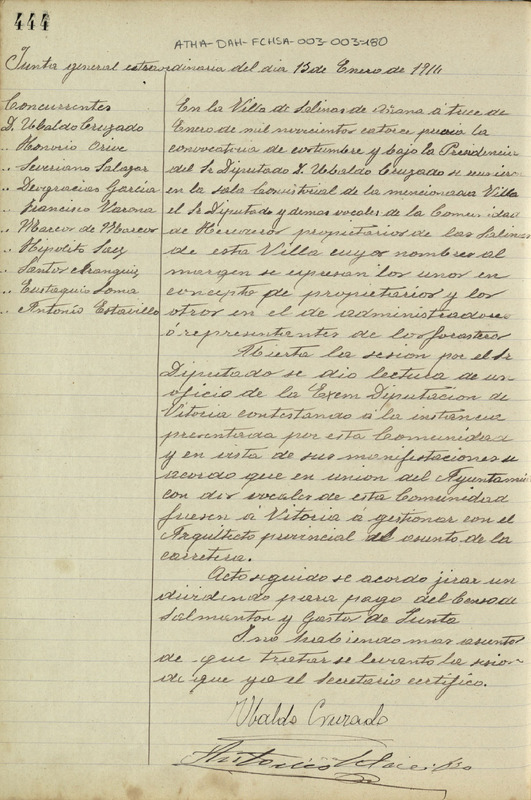 444
ATHA-DAH-FCHSA-003-003-180
Junta general estraordinaria del dia 13 de Enero de 1914
Concurrentes
D. Ubaldo Cruzado
.. Honorio Orive
.. Severiano Salazar
.. Deogracias Garcia
.. Francisco Varona
.. Marcos de Marcos
.. Hipolito Saez
.. Santos Franquiz
.. Eustaquio Loma
.. Antonio Estavillo
En la Villa de Salinas de Añana á trece de
Enero de mil novecientos catorce previa la
convocatoria de costumbre y bajo la Presidencia
del Sr Diputado D. Ubaldo Cruzado se reunieron
en la Sala Consistorial de la mencionada Villa
el Sr Diputado y demas vocales de la Comunidad
de Herederos propietarios de las Salinas
de esta Villa cuyos nombres al
margen se espresan los unos en
concepto de propietarios y los
otros en el de administradores
ó representantes de los forasteros
Abierta la sesion por el Sr
Diputado se dio lectura de un
oficio de la Exem Diputacion de
Vitoria contestando á la instancia
presentada por esta Comunidad
y en vista de sus manifestaciones se
acordo que en union del Ayuntamien
con dos vocales de esta Comunidad
fuesen á Vitoria á gestionar con el
Arquitecto provincial del asunto de la
carretera.
Acto seguido se acordo jirar un
dividendo para pago del Censo de
Salmanton y Gastos de Junta
I no habiendo mas asuntos
de que tratar se levanto la sesion
de que yo el Secretario certifico.
Ubaldo Cruzado
Antonio